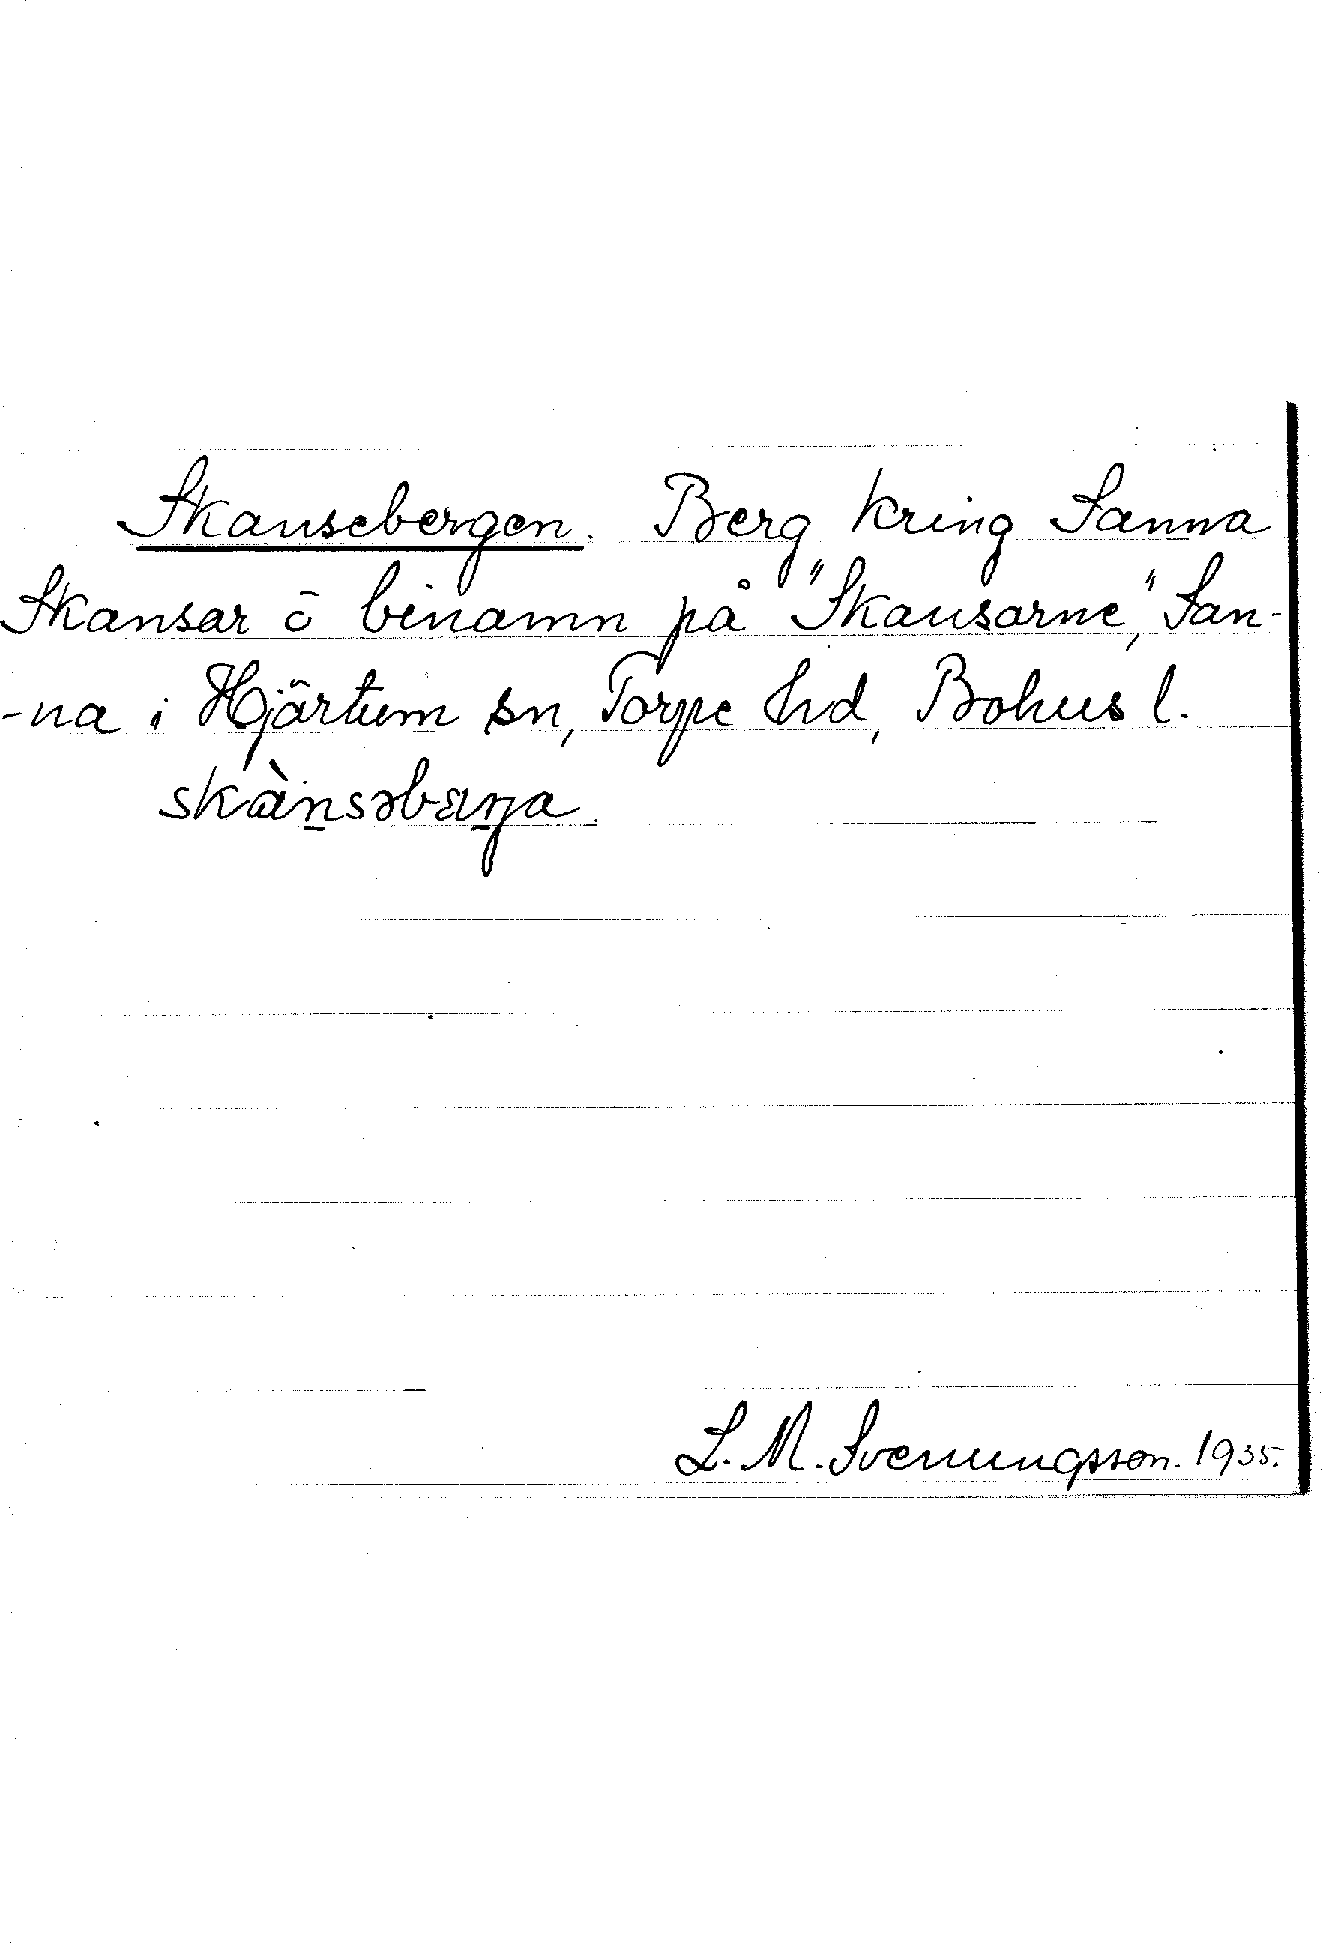 Skansebergen. Berg kring Sanna
Skansar ö binamn på "Skansarne," San-
-na i Hjärtum sn, Torpe hd, Bohus l.
skànsəbæŋa.
L. M. Svenungsson. 1935.